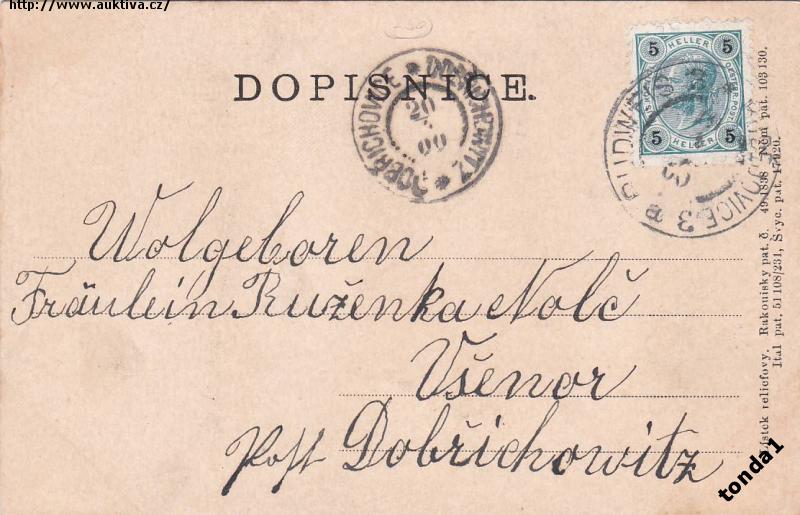 http://www.auktiva.cz/
DOPISNICE.
DOBŘICHOVICE * DOBŘICHOWITZ *
20
00
5 HELLER 5
5 HELLER 5
3 a
Wolgeboren
Fräulein Ruženka Nolč
Všenor
Post Dobřichowitz
lístek reliefovy. Rakouisky pat. č. 49/1898 Něm pat. 103 130.
Ital pat. 51108/231, Švyc. pat. 17920.
tonda1